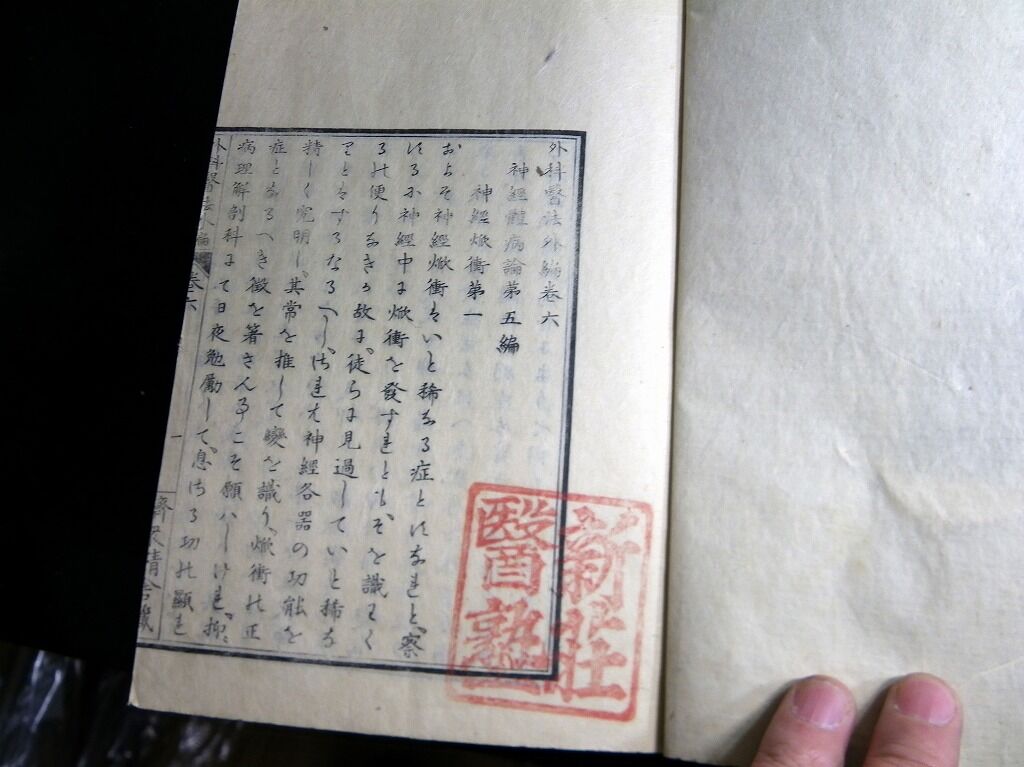 外科醫法外編卷六
神經體病論第五編
神經焮衝第一
およそ神經焮衝ハいと稀なる症とハなれと、察
するに神經中に焮衝を發すれとも、そを識わく
るの便りなきか故に、徒らに見過していと稀な
りとするなるへし、されハ神經各器の功能を
精しく究明し、其常を推して變を識り、焮衝の正
症となるへき徴を著さん事こそ願ハしけれ、抑
病理解剖科にて日夜勉勵して、息さる功の顯を
外科醫法外編
卷六
一
新莊
醫塾